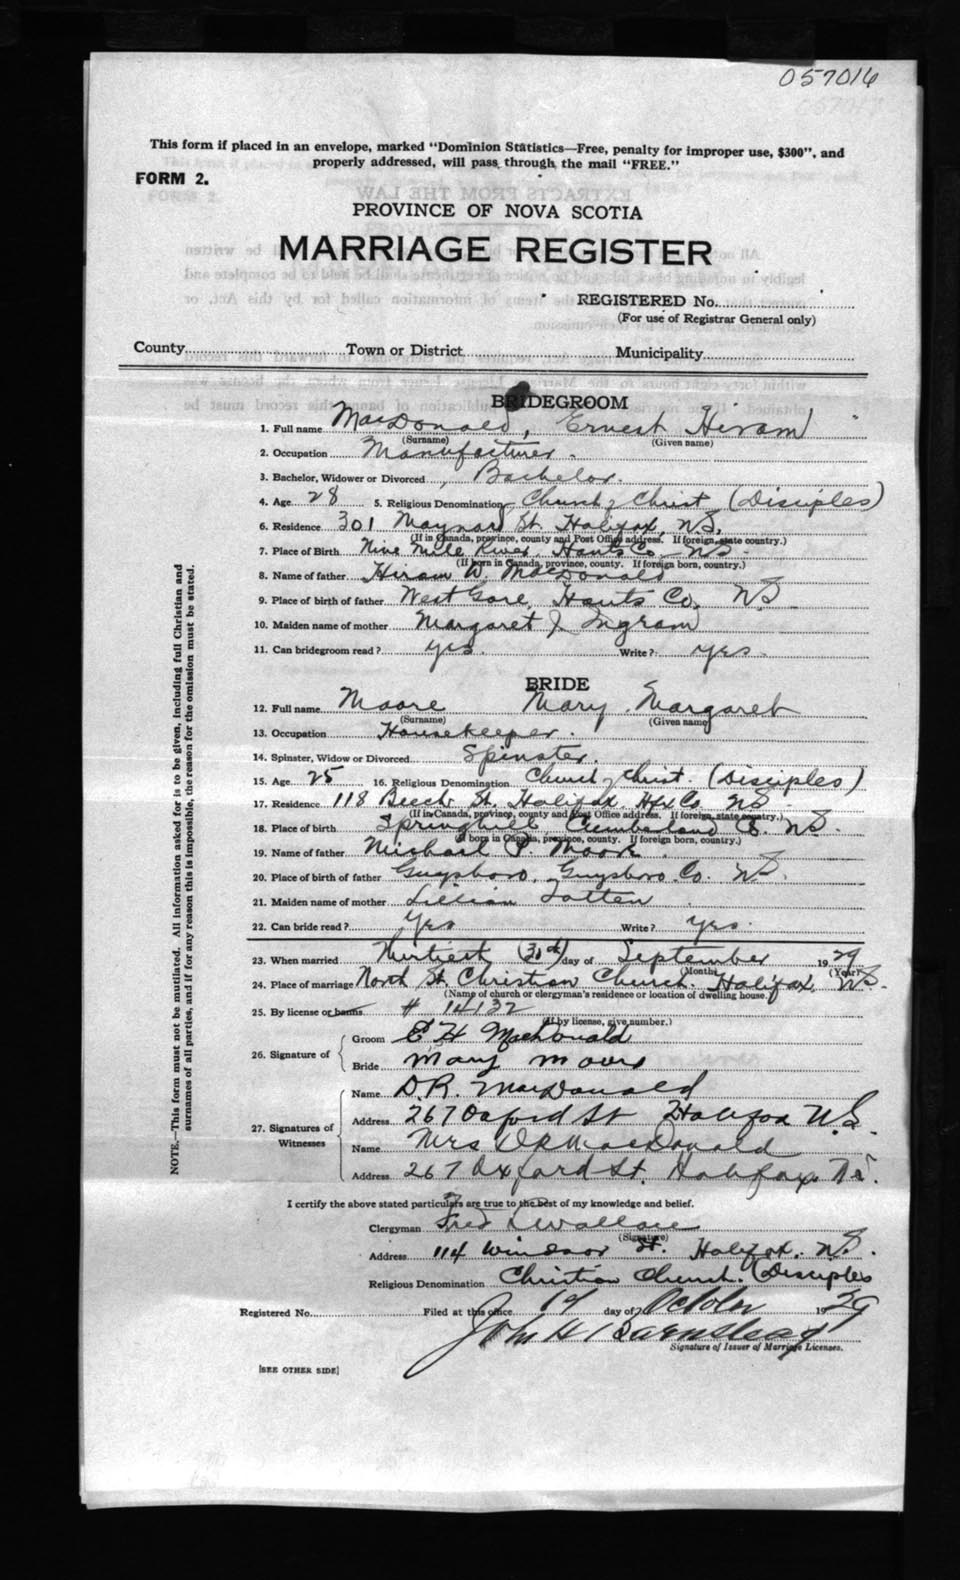 057016
This form if placed in an envelope, marked "Dominion Statistics—Free, penalty for improper use, $300", and
properly addressed, will pass through the mail "FREE."
FORM 2.
PROVINCE OF NOVA SCOTIA
MARRIAGE REGISTER
REGISTERED No.
(For use of Registrar General only)
County Town or District Municipality
BRIDEGROOM
1. Full name MacDonald, Ernest Hiram
(Surname) (Given name)
2. Occupation Manufacturer.
3. Bachelor, Widower or Divorced Bachelor.
4. Age 28 5. Religious Denomination Church of Christ (Disciples)
6. Residence 301 Maynard St. Halifax, N.S,
(If in Canada, province, county and Post Office address. If foreign, state country.)
7. Place of Birth Nine Mile River, Hants Co. N.S.
(If born in Canada, province, county. If foreign born, country.)
8. Name of father Hiram W. MacDonald
9. Place of birth of father West Gore, Hants Co. N.S.
10. Maiden name of mother Margaret J Ingram
11. Can bridegroom read? yes. Write? yes.
BRIDE
12. Full name Moore Mary Margaret
(Surname) (Given name)
13. Occupation Housekeeper.
14. Spinster, Widow or Divorced Spinster.
15. Age 25 16. Religious Denomination Church of Christ. (Disciples)
17. Residence 118 Beech St. Halifax Hfx Co. N.S.
(If in Canada, province, county and Post Office address. If foreign, state country.)
18. Place of birth Springhill, Cumberland Co. N.S.
(If born in Canada, province, county. If foreign born, country.)
19. Name of father Michael P. Moore.
20. Place of birth of father Guysboro, Guysboro Co. N.S.
21. Maiden name of mother Lillian Totten
22. Can bride read? Yes Write? yes.
23. When married Thirtiest (30th) day of September 1929
(Month) (Year)
24. Place of marriage North St. Christian Church. Halifax, N.S.
(Name of church or clergyman's residence or location of dwelling house.)
25. By license or banns # 14132
(If by license, give number.)
26. Signature of Groom E H MacDonald
Bride Mary Moore
27. Signatures of Witnesses Name D.R. MacDonald
Address 267 Oxford St Halifax N.S.
Name Mrs D R MacDonald
Address 267 Oxford St. Halifax N.S.
I certify the above stated particulars are true to the best of my knowledge and belief.
Clergyman Fred Wallace
(Signature)
Address 114 Windsor St. Halifax. N.S.
Religious Denomination Christian Church. (Disciples
Registered No. Filed at this office 1st day of October 1929
John H Barnstead
Signature of Issuer of Marriage Licenses.
[SEE OTHER SIDE]
NOTE.—This form must not be mutilated. All information asked for is to be given, including full Christian and
surnames of all parties, and if for any reason this is impossible, the reason for the omission must be stated.